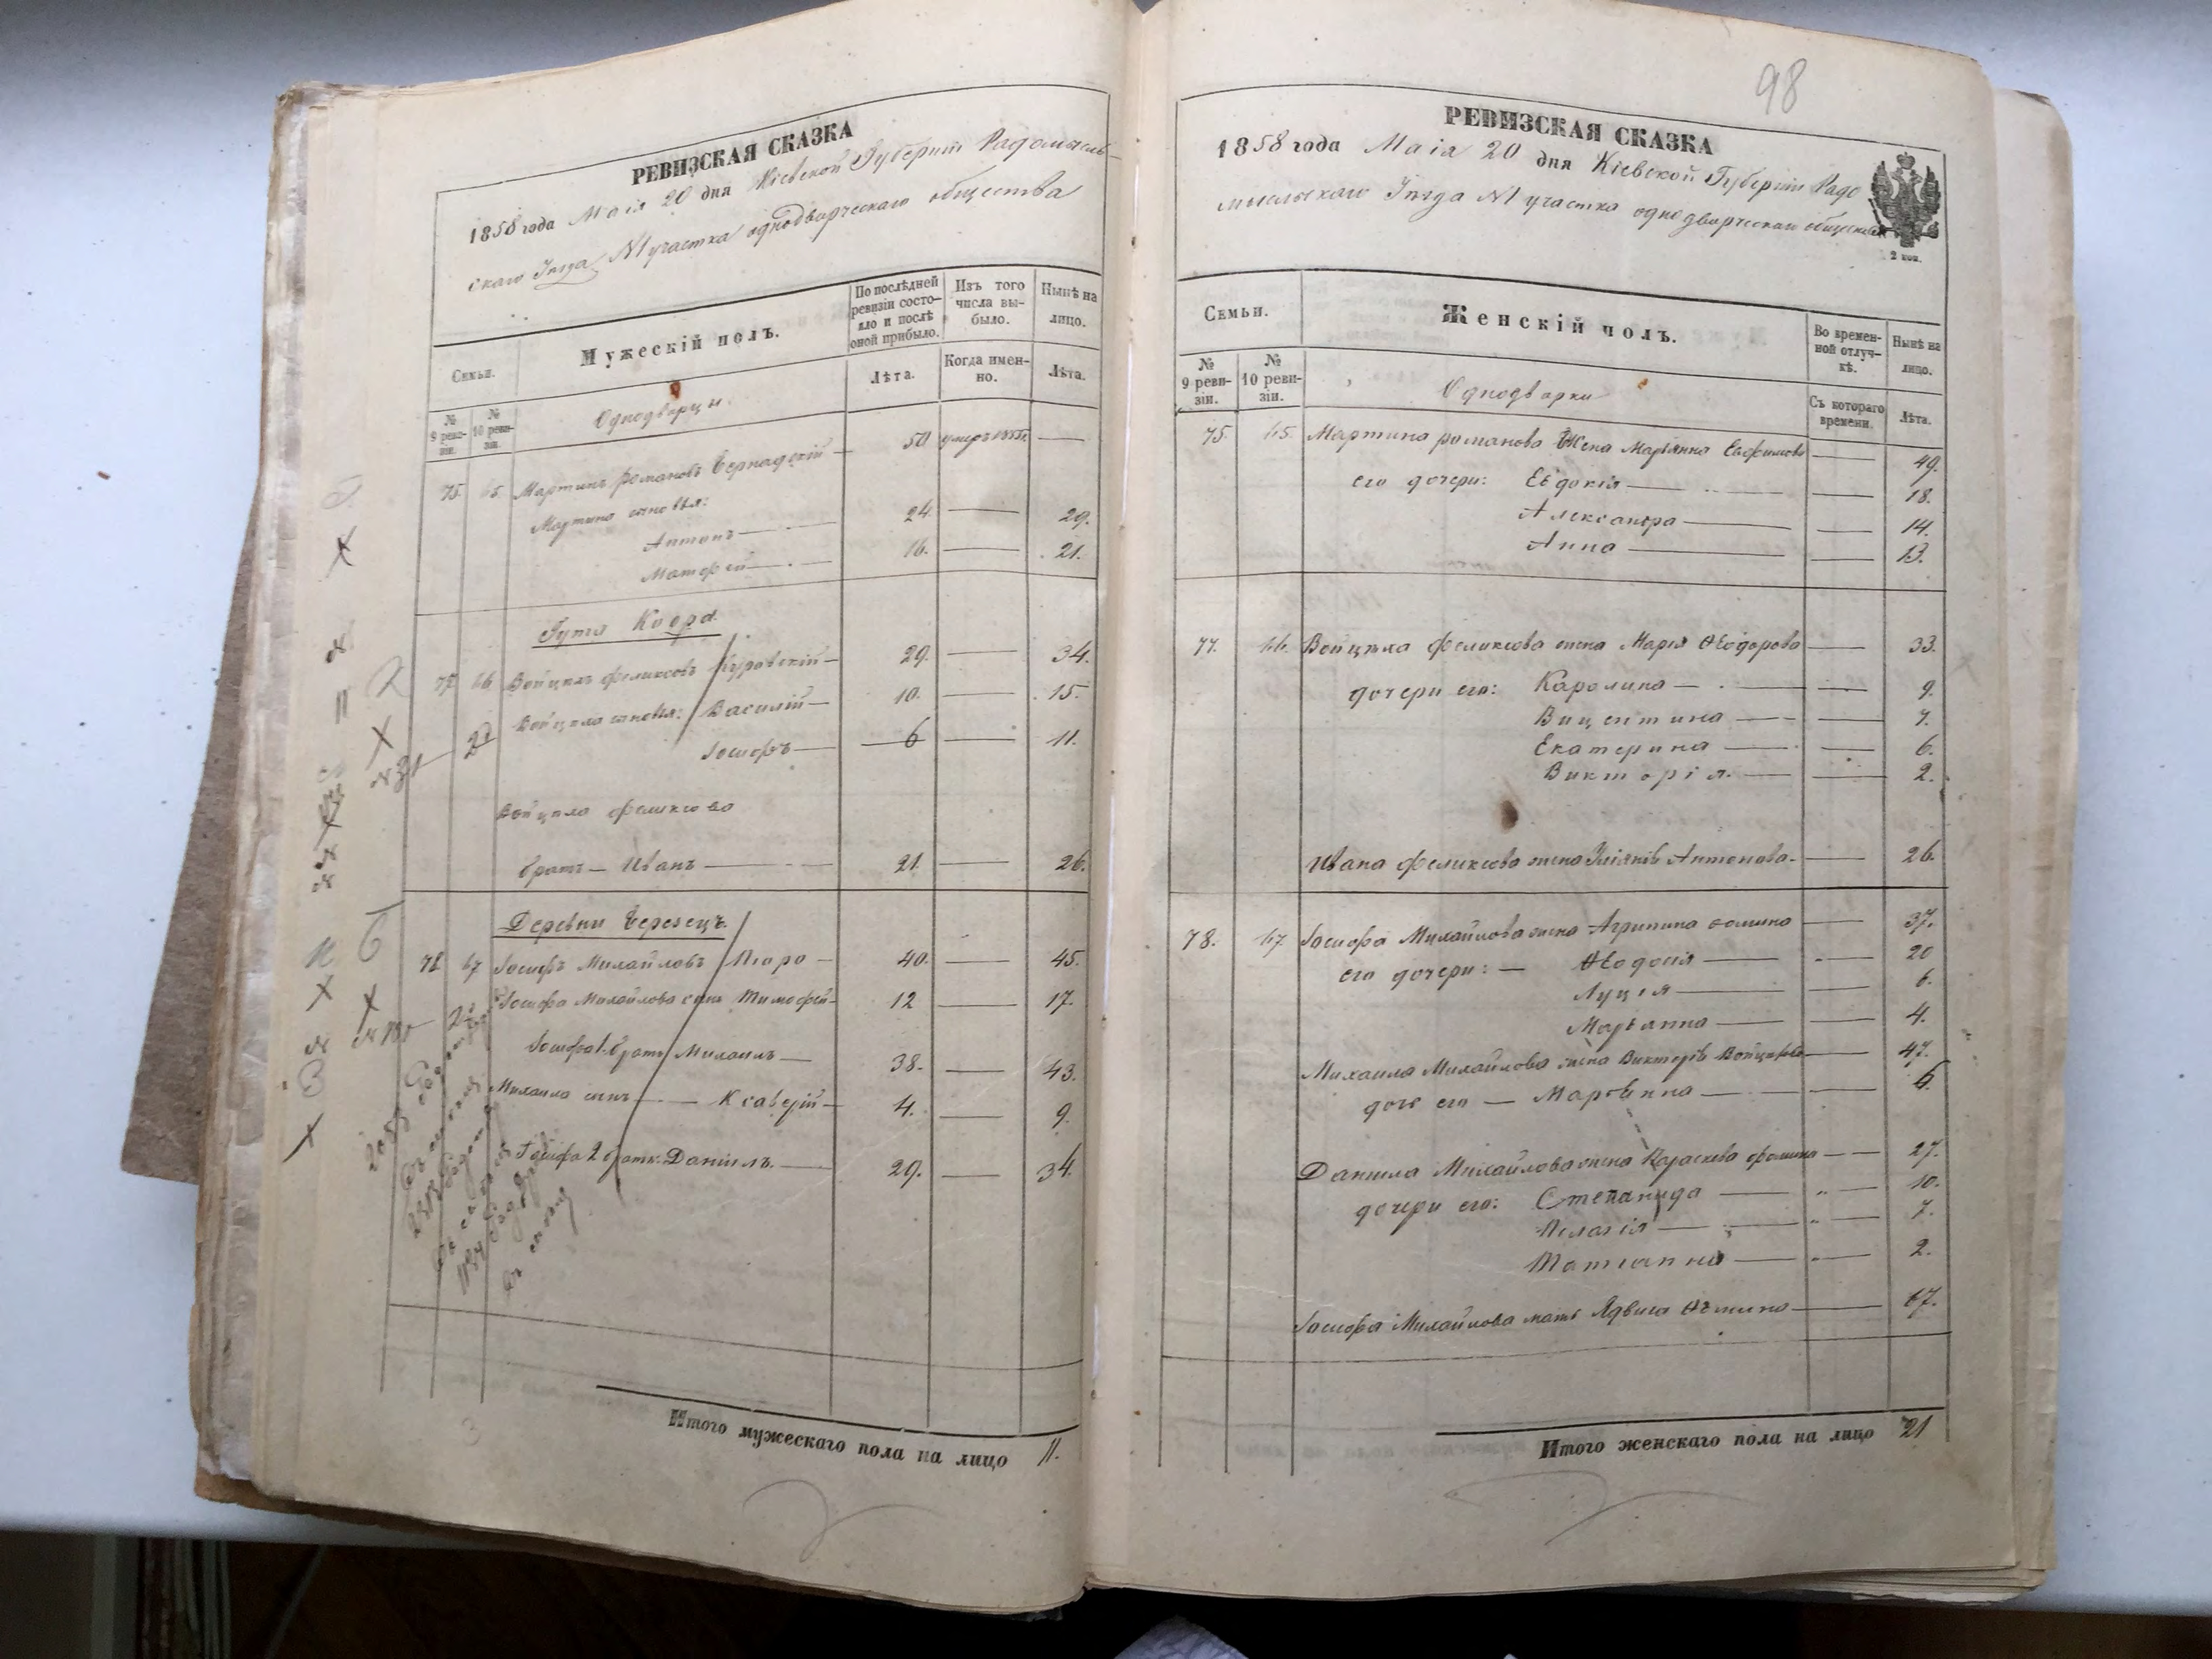 РЕВИЗСКАЯ СКАЗКА
1858 года Маія 20 дня Кіевской Губерніи Радомысль-
скаго Уѣзда №1 участка однодворческаго общества
Семьи.
Мужескій полъ.
По послѣдней ревизіи состояло и послѣ оной прибыло.
Изъ того числа выбыло.
Ныпѣ на лицо.
№ 9 ревизіи.
№ 10 ревизіи.
Однодворцы
Лѣта.
Когда именно.
Лѣта.
75. 65. Мартинъ Романовъ Бернадскій — 50 умеръ —
Мартина сыновья:
Антонъ — 24. — 29.
Матфей — 16. — 21.
Гута
77 66 Войцехъ Феликсовъ — 29. — 34.
Войцеха сыновья: Василій — 10. — 15.
Іосифъ — 6 — 11.
Войцеха Феликсова
братъ — Иванъ — 21. — 26.
Деревни
78 67 Іосифъ Михайловъ — 40. — 45.
Іосифа Михайлова сынъ Тимофей — 12 — 17.
Іосифа 1. братъ Михаилъ — 38. — 43.
Михаила сынъ — Ксаверій — 4. — 9.
Іосифа 2 братъ: Данилъ. — 29. — 34.
Итого мужескаго пола на лицо 11.
98
РЕВИЗСКАЯ СКАЗКА
1858 года Маія 20 дня Кіевской Губерніи Радо
мысльскаго Уѣзда №1 участка однодворческаго общества
2 коп.
Семьи.
Женскій полъ.
Во временной отлучкѣ.
Нынѣ на лицо.
№ 9 ревизіи.
№ 10 ревизіи.
Однодворки
Съ котораго времени.
Лѣта.
75. 65. Мартина Романова жена Марьянна Ефимова — 49.
его дочери: Евдокія — 18.
Александра — 14.
Анна — 13.
77. 66. Войцеха Феликсова жена Марія Ѳеодорова — 33.
дочери его: Каролина — 9.
Вицентина — 7.
Екатерина — 6.
Викторія — 2.
Ивана Феликсова жена Антонова — 26.
78. 67 Іосифа Михайлова жена Агрипина — 37.
его дочери: — Ѳеодосія — 20
Луція — 6.
Марьянна — 4.
Михаила Михайлова жена Викторія — 47.
дочь его — Марьянна — 6.
Данила Михайлова жена Параскева — 27.
дочери его: Степанида — 10.
Пелагія — 7.
Татіанна — 2.
Іосифа Михайлова мать Ядвига — 67.
Итого женскаго пола на лицо 21